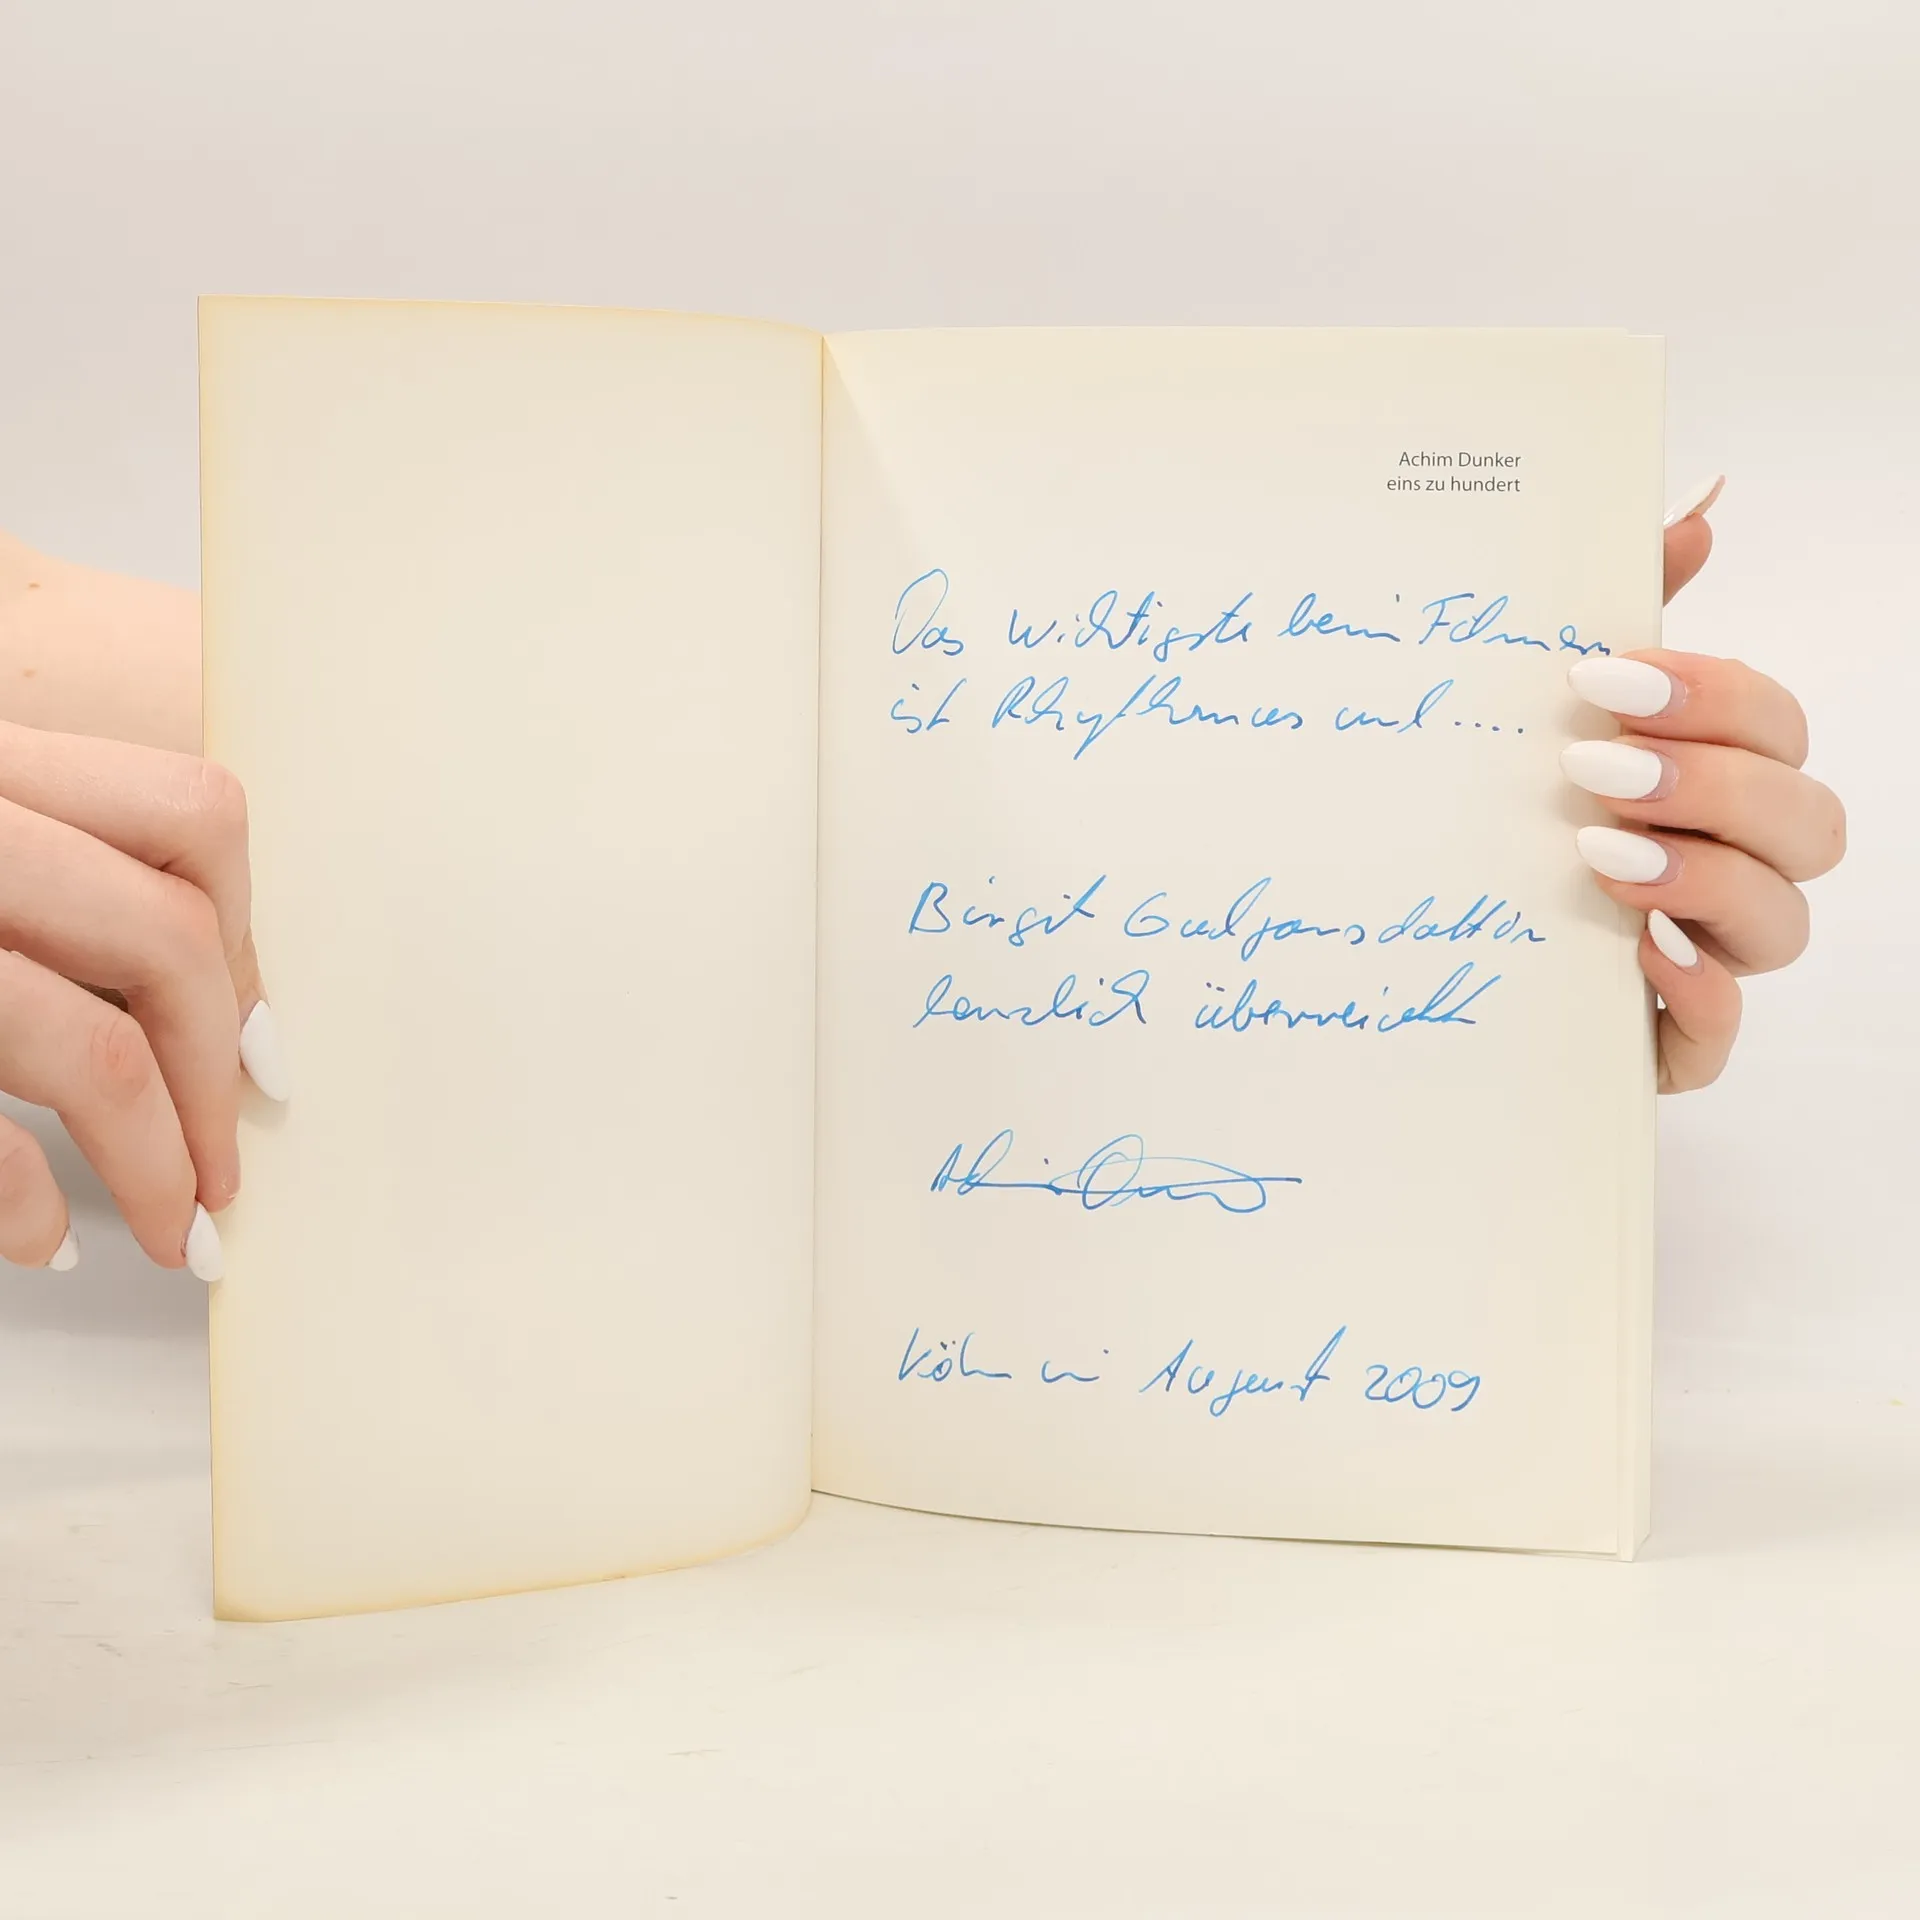 Achim Dunker
eins zu hundert
Das wichtigste beim Filmen
ist Rhythmus und ....
Birgit Gudjonsdottir
herzlich überreicht
Achim Dunker
Köln im August 2009